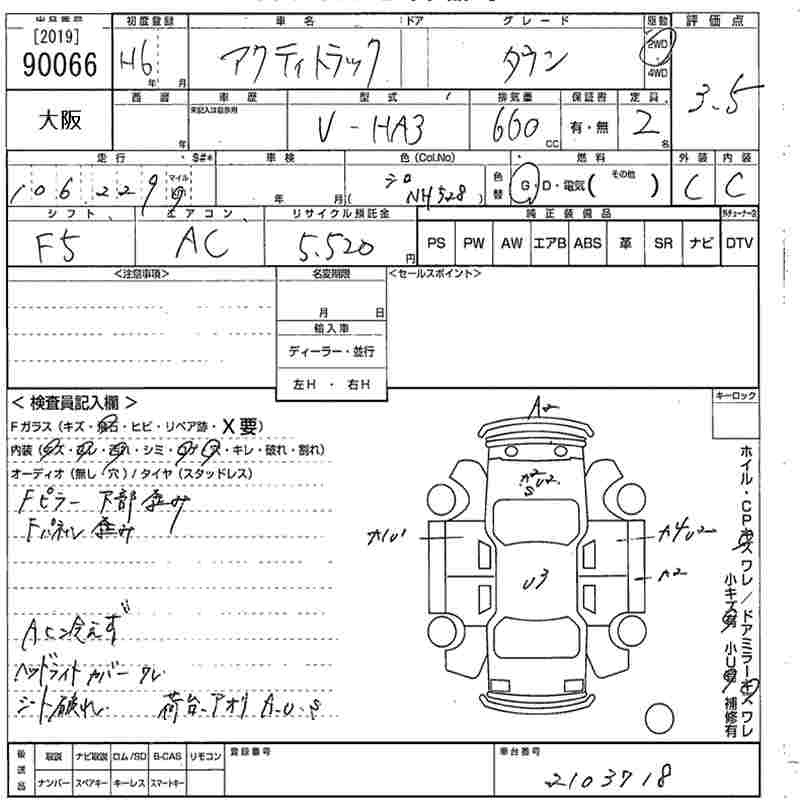 [2019]
90066
初度登録
車名
ドア
グレード
駆動
評価点
H6
年 月
アクティトラック
タウン
2WD
4WD
3.5
大阪
西暦
車歴
型式
排気量
保証書
定員
年
未記入は自家用
V-HA3
660
CC
有・無
2
名
走行
S#*
車検
色(Col.No)
燃料
外装
内装
106,229
マイル
年 月
シロ
( NH528 )
色替
G・D・電気( その他 )
C
C
シフト
エアコン
リサイクル預託金
純正装備品
F5
AC
5.520
円
PS PW AW エアB ABS 革 SR ナビ DTV
<注意事項>
名変期限
<セールスポイント>
月 日
輸入車
ディーラー・並行
左H ・ 右H
< 検査員記入欄 >
キーロック
Fガラス(キズ・飛石・ヒビ・リペア跡・X要)
内装(キズ・ヨレ・汚れ・シミ・コゲ・穴・キレ・破れ・割れ)
オーディオ(無し 穴)/タイヤ(スタッドレス)
Fピラー 下部 歪み
Fパネル 歪み
ACン冷えず
ヘッドライトカバー ワレ
シート破れ 荷台.アオリ A.U.S
A2
カ2
S U2
カ1U1
カ4U2
カ2
U3
ホイル・CPキズ ワレ/ドアミラーキズ ワレ
小キズ有 小U有 補修有
後送品
取説 ナビ取説 ロム/SD B-CAS リモコン
ナンバー スペアキー キーレス スマートキー
登録番号
車台番号
2103718